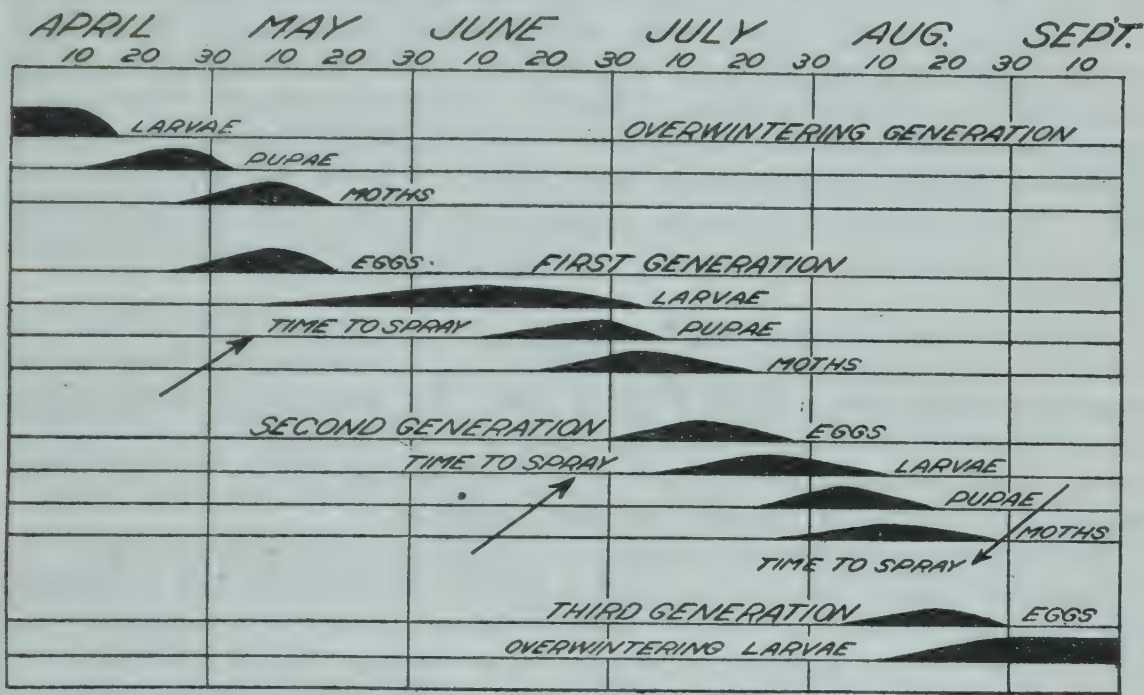 APRIL MAY JUNE JULY AUG. SEPT.
10 20 30 10 20 30 10 20 30 10 20 30 10 20 30 10
LARVAE OVERWINTERING GENERATION
PUPAE
MOTHS
EGGS. FIRST GENERATION
LARVAE
TIME TO SPRAY PUPAE
MOTHS
SECOND GENERATION EGGS
TIME TO SPRAY LARVAE
PUPAE
MOTHS
TIME TO SPRAY
THIRD GENERATION EGGS
OVERWINTERING LARVAE